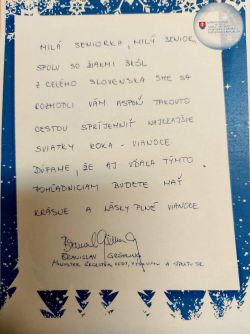 MILÁ SENIORKA, MILÝ SENIOR,
SPOLU SO ŽIAKMI ŠKÔL
Z CELÉHO SLOVENSKA SME SA
ROZHODLI VÁM ASPOŇ TAKOUTO
CESTOU SPRÍJEMNIŤ NAJKRAJŠIE
SVIATKY ROKA - VIANOCE.
DÚFAME, ŽE AJ VĎAKA TÝMTO
POHĽADNICIAM BUDETE MAŤ
KRÁSNE A LÁSKY PLNÉ VIANOCE.
BRANISLAV GRÖHLING
MINISTER ŠKOLSTVA, VEDY, VÝSKUMU A ŠPORTU SR